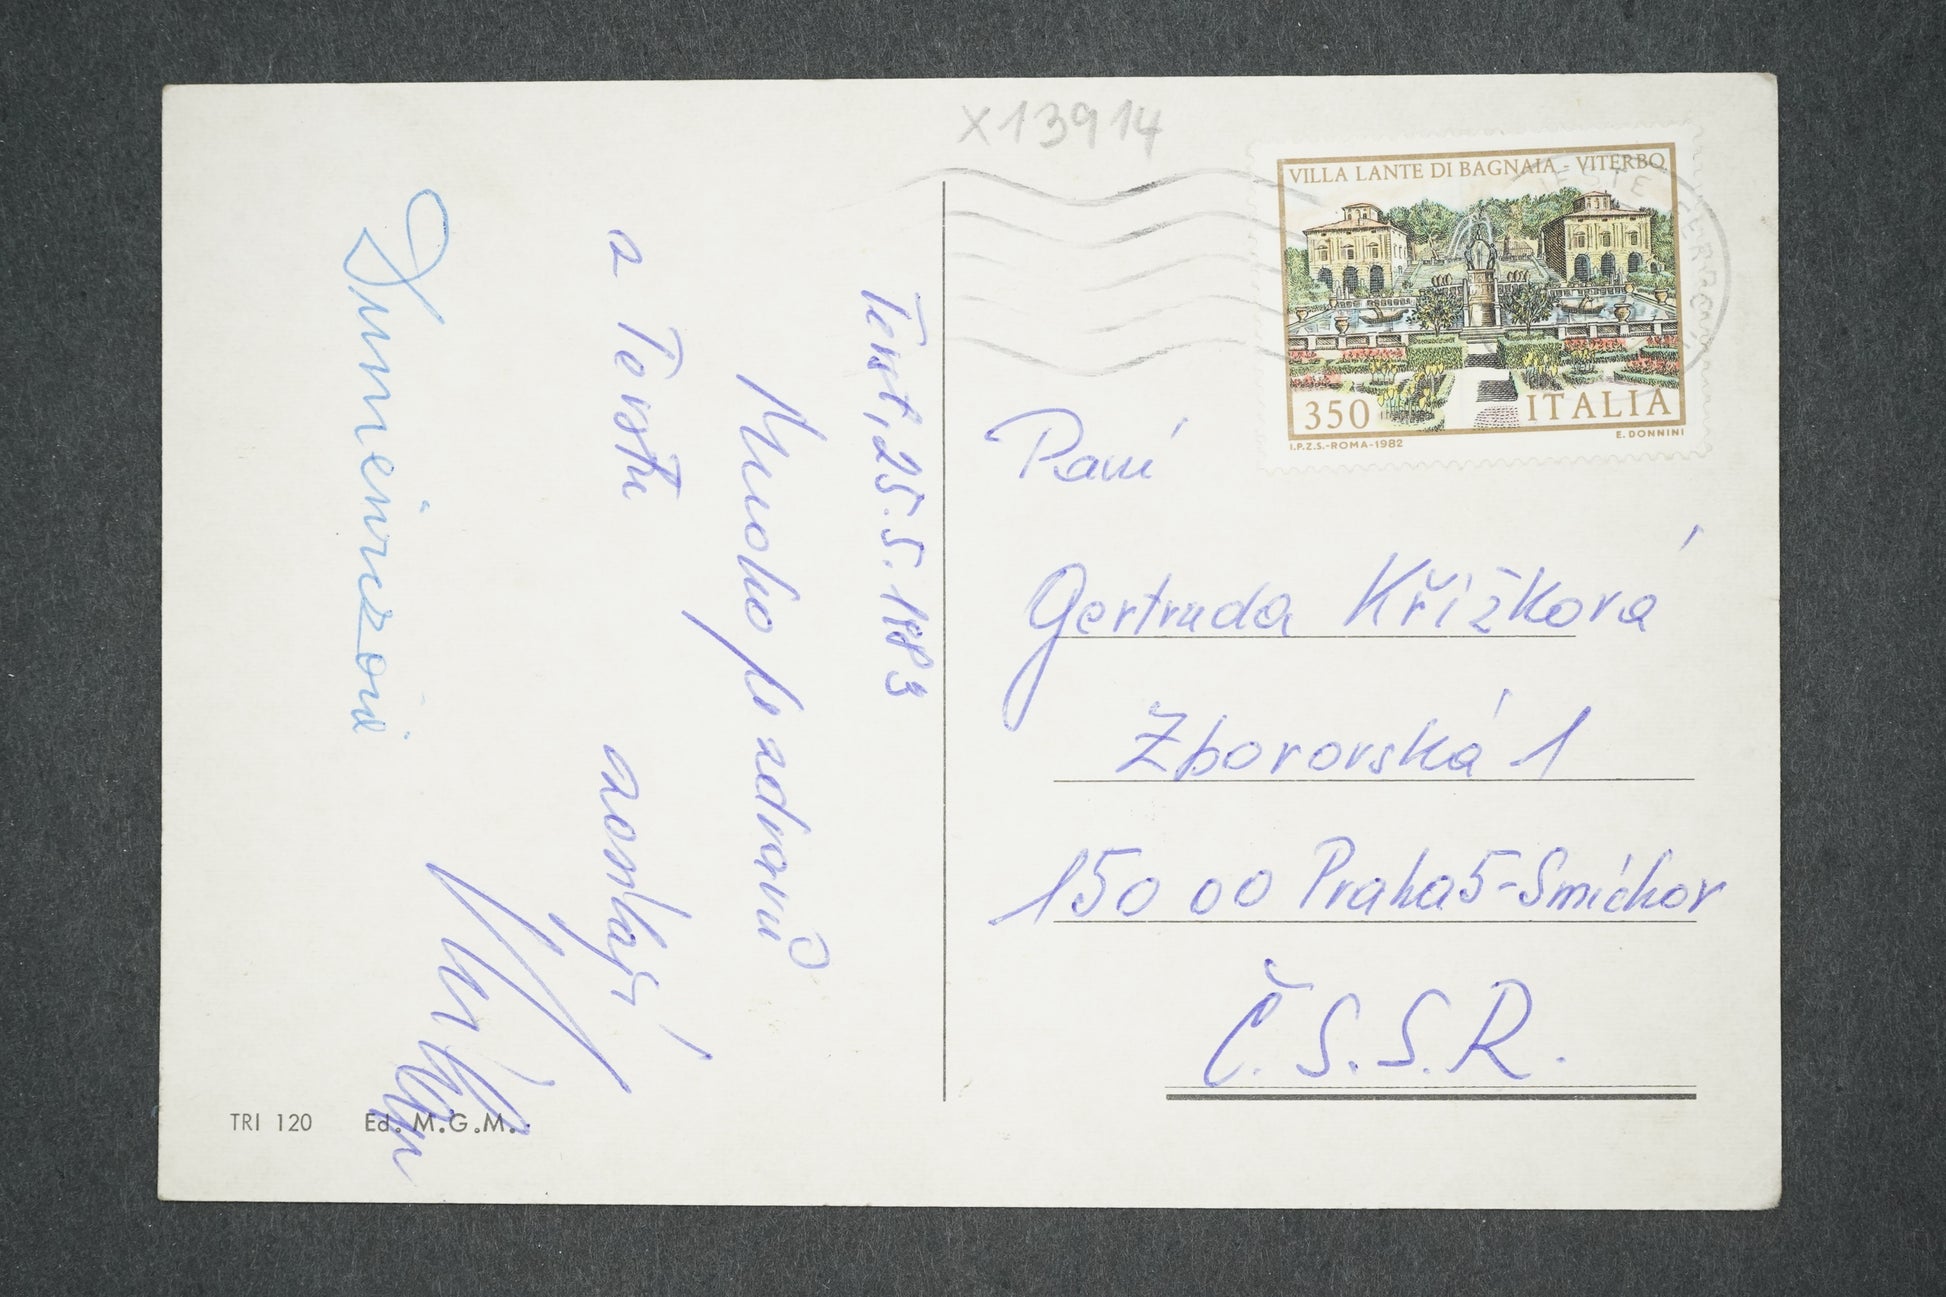 X13914
VILLA LANTE DI BAGNAIA - VITERBO
350 ITALIA
I.P.Z.S.-ROMA-1982 E. DONNINI
Terst, 25.5.1983
Mnoho pozdravů
z Terstu zasílají
Paní
Gertruda Křížková
Zborovská 1
150 00 Praha 5-Smíchov
Č.S.S.R.
TRI 120 Ed. M.G.M.